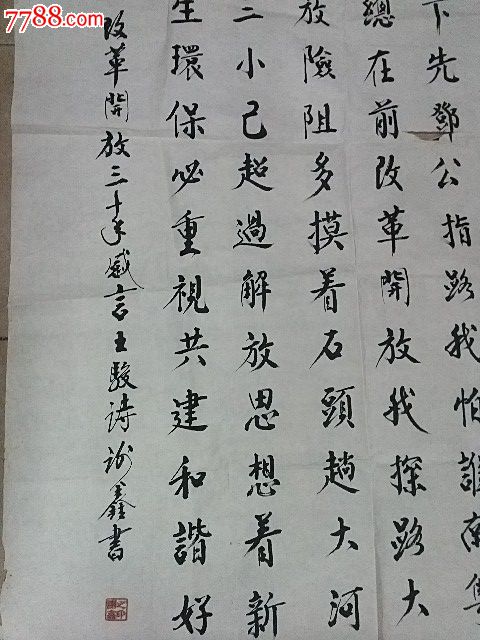 7788.com
下先鄧公指路我怕誰南粵
總在前改革開放我探路大
放險阻多摸着石頭趟大河
二小己超過解放思想着新
生環保必重視共建和諧好
改革開放三十年感言王駿詩謝鑫書